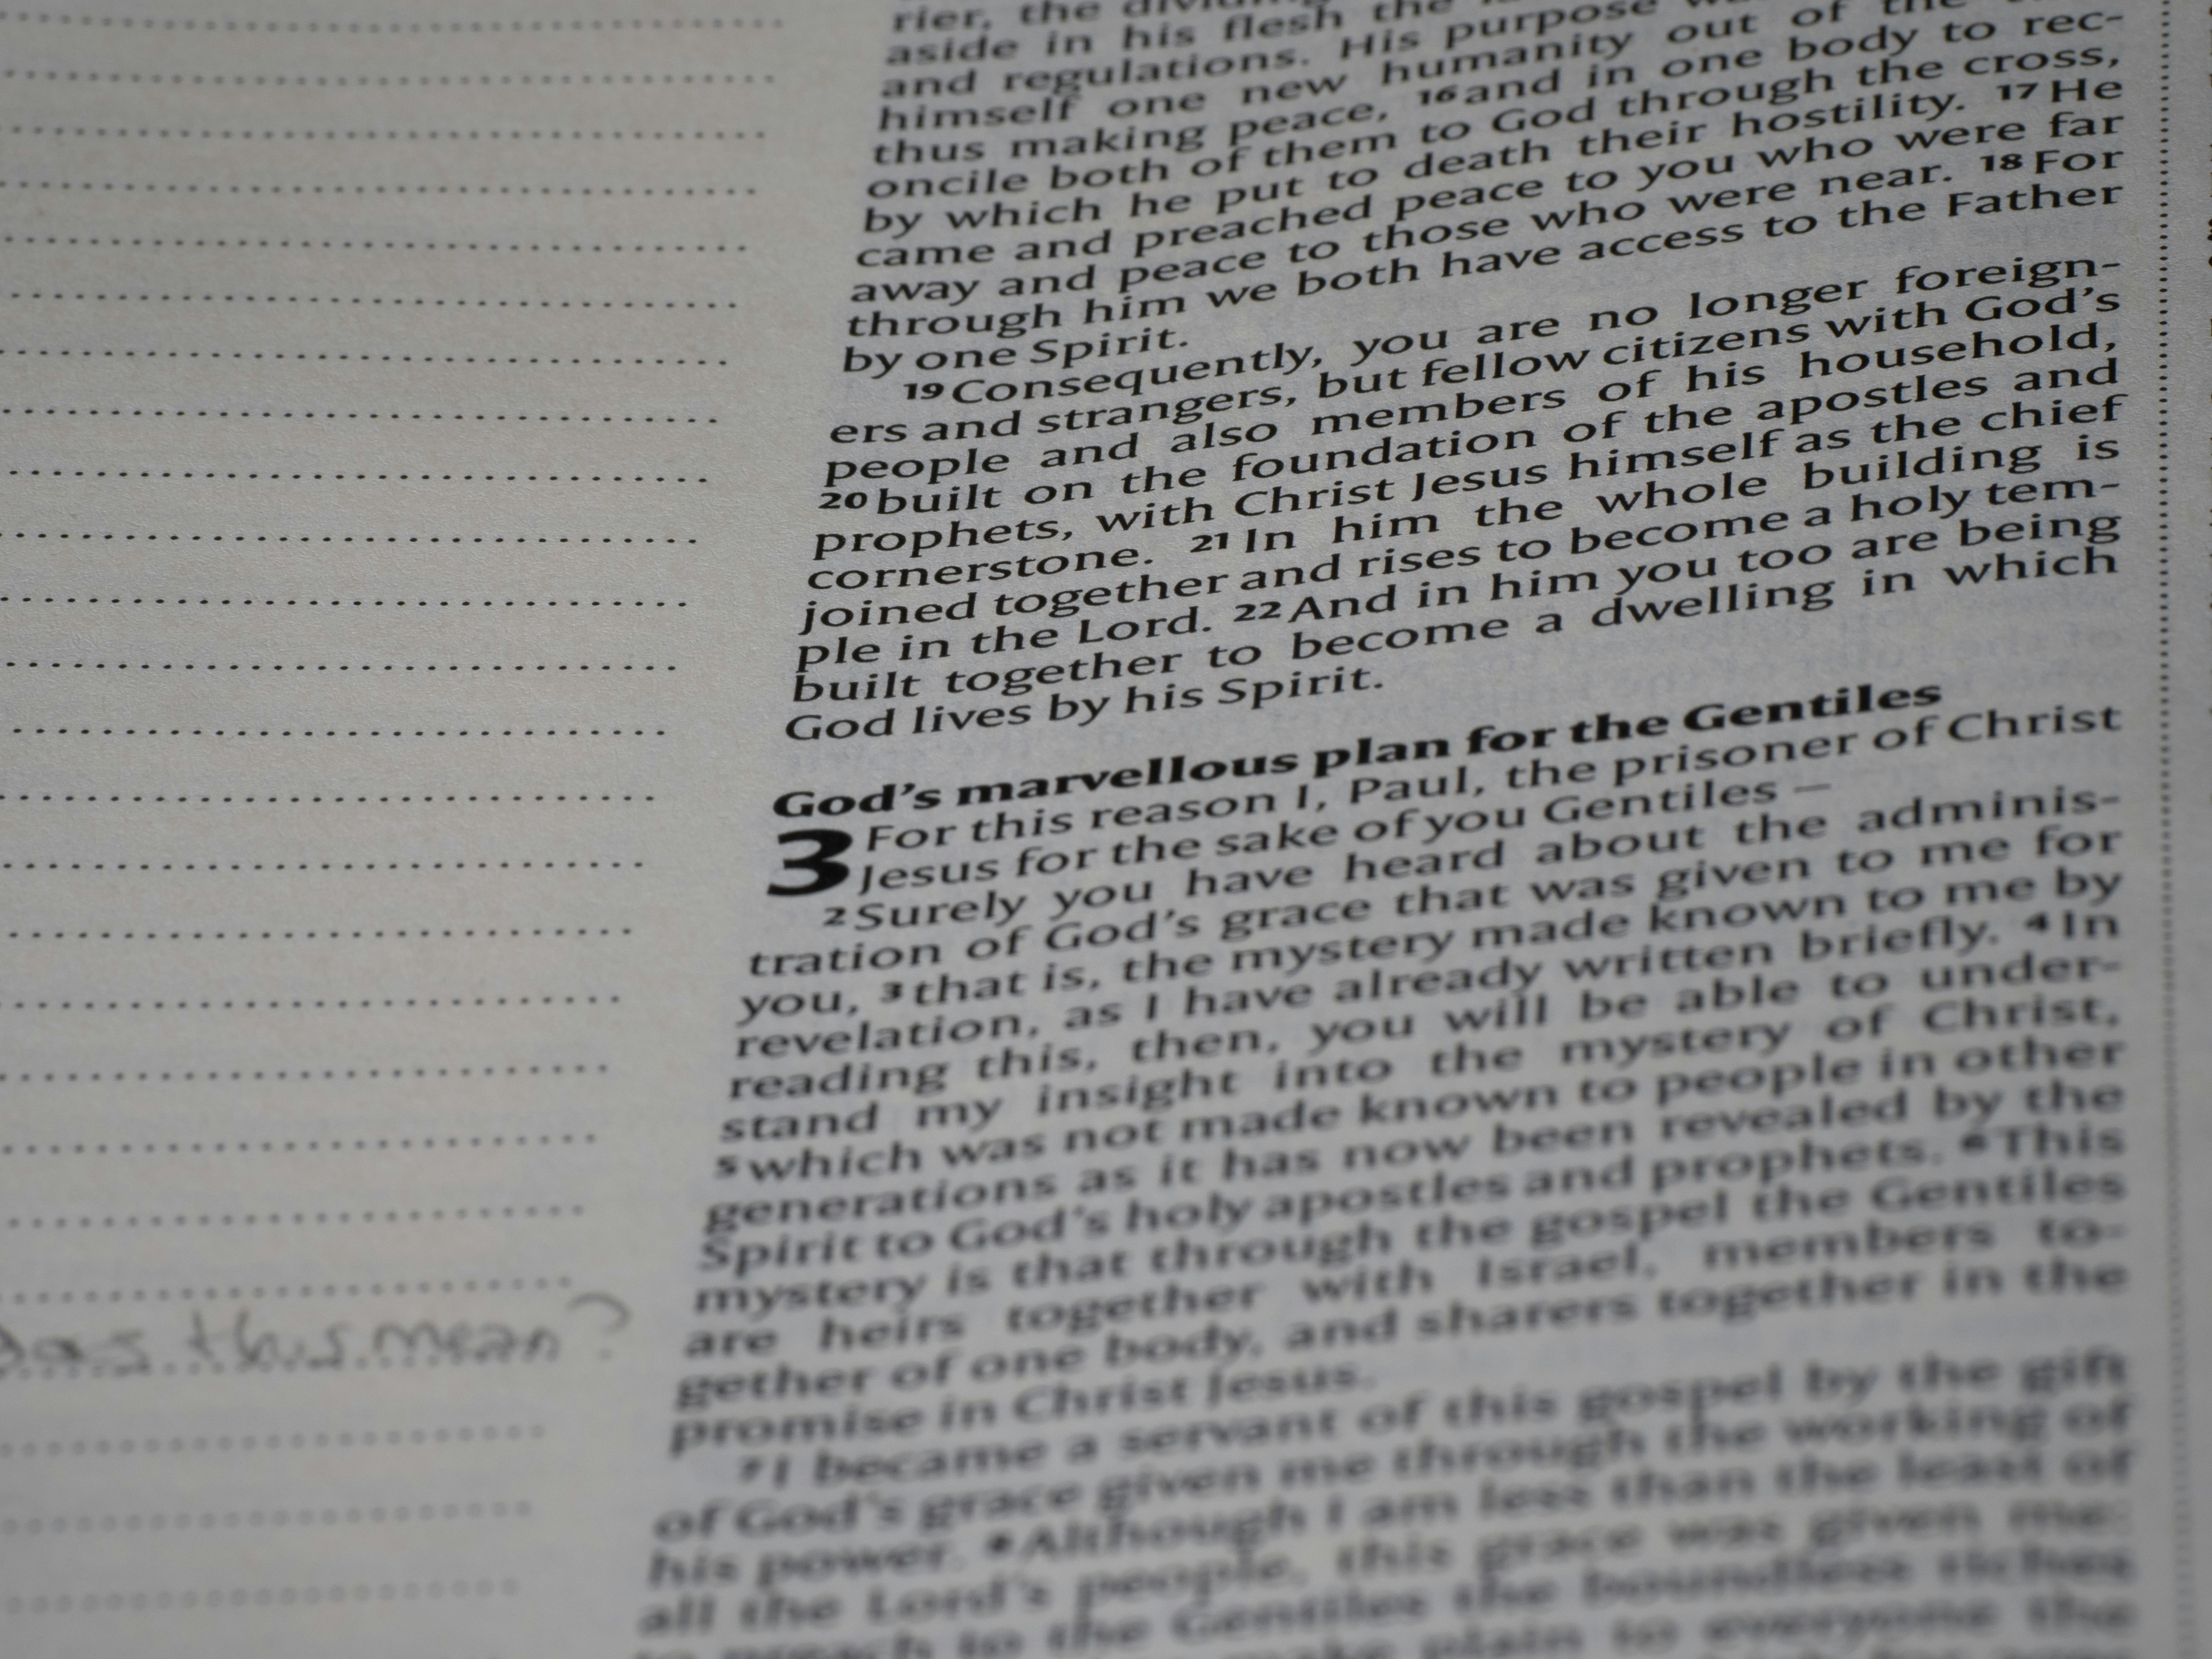 rier, the
aside in his flesh the
and regulations. His purpose
himself one new humanity out of the
thus making peace, 16 and in one body to rec-
oncile both of them to God through the cross,
by which he put to death their hostility. 17 He
came and preached peace to you who were far
away and peace to those who were near. 18 For
through him we both have access to the Father
by one Spirit.
19 Consequently, you are no longer foreign-
ers and strangers, but fellow citizens with God's
people and also members of his household,
20 built on the foundation of the apostles and
prophets, with Christ Jesus himself as the chief
cornerstone. 21 In him the whole building is
joined together and rises to become a holy tem-
ple in the Lord. 22 And in him you too are being
built together to become a dwelling in which
God lives by his Spirit.
God's marvellous plan for the Gentiles
3 For this reason I, Paul, the prisoner of Christ
Jesus for the sake of you Gentiles –
2 Surely you have heard about the adminis-
tration of God's grace that was given to me for
you, 3 that is, the mystery made known to me by
revelation, as I have already written briefly. 4 In
reading this, then, you will be able to under-
stand my insight into the mystery of Christ,
5 which was not made known to people in other
generations as it has now been revealed by the
Spirit to God's holy apostles and prophets. 6 This
mystery is that through the gospel the Gentiles
are heirs together with Israel, members to-
gether of one body, and sharers together in the
promise in Christ Jesus.
7 I became a servant of this gospel by the gift
of God's grace given me through the working of
his power. 8 Although I am less than the least of
all the Lord's people, this grace was given me:
to preach to the Gentiles the boundless riches
plain to everyone the
this mean?